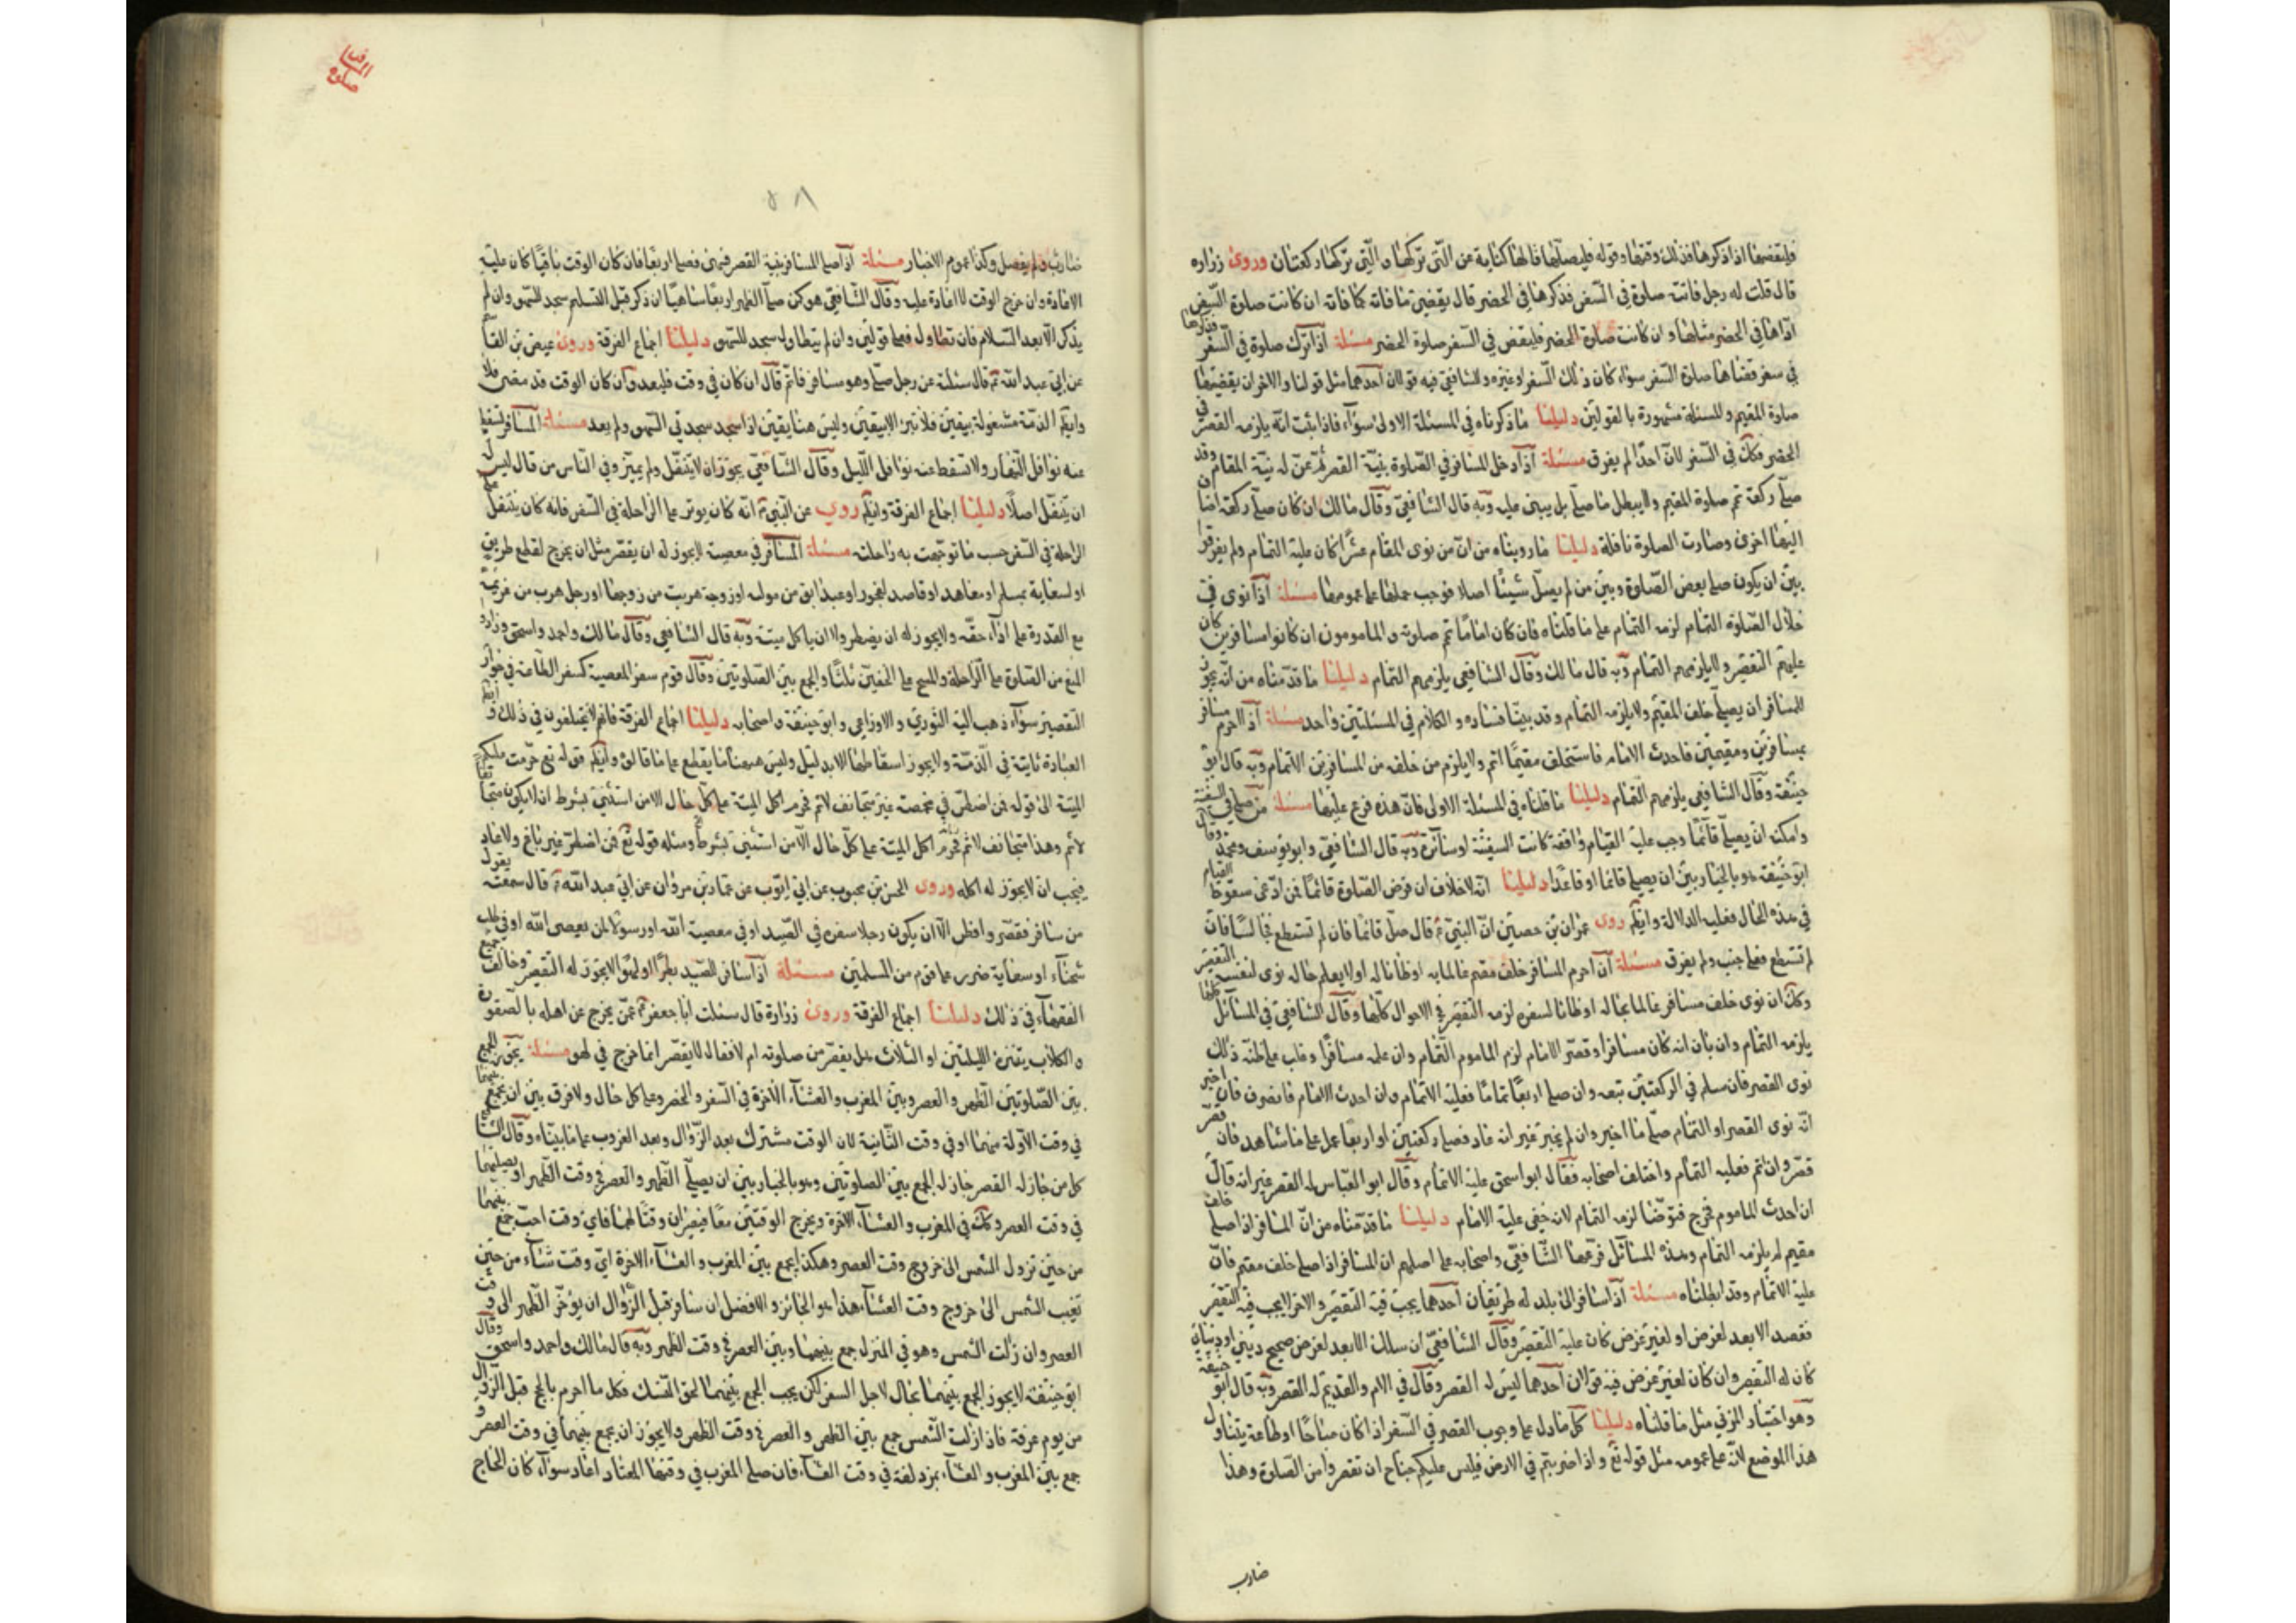 فليقضها اذا ذكرها فذلك وقتها وقوله فليصلها فالهاء كناية عن التي تركها والتي تركها ركعتان وروى زرارة
قال قلت له رجل فاتته صلوة في السفر فذكرها في الحضر قال يقضي ما فاته كما فاته ان كانت صلوة السفر
اداها في الحضر مثلها وان كانت صلوة الحضر فليقض في السفر صلوة الحضر مسئلة اذا ترك صلوة في السفر فذكرها
في سفر قضاها صلوة السفر سواء كان ذلك السفر او غيره وللشافعي فيه قولان احدهما مثل قولنا والاخر ان يقضيها
صلوة المقيم والمسئلة مشهورة بالقولين دليلنا ما ذكرناه في المسئلة الاولى سواء فاذا ثبت انه يلزمه القصر في
الحضر فكك في السفر لان احدا لم يفرق مسئلة اذا دخل المسافر في الصلوة بنية القصر ثم عن له نية المقام وقد
صلى ركعة تم صلوة المقيم ولا يبطل ما صلى بل يبنى عليه وبه قال الشافعي وقال مالك ان كان صلى ركعة اضاف
اليها اخرى وصارت الصلوة نافلة دليلنا ما رويناه من ان من نوى المقام عشرا كان عليه التمام ولم يفرقوا
بين ان يكون صلى بعض الصلوة وبين من لم يصل شيئا اصلا فوجب حملها على عمومها مسئلة اذا نوى في
خلال الصلوة التمام لزمه التمام على ما قلناه فان كان اماما تم صلوته والمامومون ان كانوا مسافرين كان
عليهم التقصير ولا يلزمهم التمام وبه قال مالك وقال الشافعي يلزمهم التمام دليلنا ما قدمناه من انه يجوز
للمسافر ان يصلى خلف المقيم ولا يلزمه التمام وقد بينا فساده والكلام في المسئلتين واحد مسئلة اذا احرم مسافر
بمسافرين ومقيمين فاحدث الامام فاستخلف مقيما اتم ولا يلزم من خلفه من المسافرين الاتمام وبه قال ابو
حنيفة وقال الشافعي يلزمهم التمام دليلنا ما قلناه في المسئلة الاولى فان هذه فرع عليها مسئلة من صلى في السفينة
وامكنه ان يصلى قائما وجب عليه القيام واقفة كانت السفينة او سائرة وبه قال الشافعي وابو يوسف ومحمد وقال
ابو حنيفة هو بالخيار بين ان يصلى قائما او قاعدا دليلنا انه لا خلاف ان فرض الصلوة قائما فمن ادعى سقوط القيام
في هذه الحال فعليه الدلالة وايضا روى عمران بن حصين ان النبي قال صل قائما فان لم تستطع فجالسا فان
لم تستطع فعلى جنب ولم يفرق مسئلة ان احرم المسافر خلف مقيم عالما به او ظانا له او لا يعلم حاله نوى لنفسه التقصير
وكك ان نوى خلف مسافر عالما بحاله او ظانا لسفره لزمه التقصير في الاحوال كلها وقال الشافعي في المسائل كلها
يلزمه التمام وان بان انه كان مسافرا وقصر الامام لزم الماموم التمام وان علمه مسافرا وغلب على ظنه ذلك
نوى القصر فان سلم في الركعتين تبعه وان صلى اربعا تماما فعليه الاتمام وان احدث الامام فانصرف فان اخبر
انه نوى القصر او التمام صلى ما اخبر وان لم يخبر غير انه عاد فصلى ركعتين او اربعا عمل على ما شاهد فان قصر
قصر وان تم فعليه التمام واختلف اصحابه فقال ابو اسحق عليه الاتمام وقال ابو العباس له القصر غير انه قال
ان احدث الماموم فخرج فتوضا لزمه التمام لانه خفى عليه الامام دليلنا ما قدمناه من ان المسافر اذا صلى خلف
مقيم لم يلزمه التمام وهذه المسائل فرعها الشافعي واصحابه على اصلهم ان المسافر اذا صلى خلف مقيم فان
عليه الاتمام وقد ابطلناه مسئلة اذا سافر الى بلد له طريقان احدهما يجب فيه التقصير والاخر لا يجب فيه التقصير
فقصد الابعد لغرض او لغير غرض كان عليه التقصير وقال الشافعي ان سلك الابعد لغرض صحيح ديني او دنياوي
كان له التقصير وان كان لغير غرض فيه قولان احدهما ليس له القصر وقال في الام والقديم له القصر وبه قال ابو حنيفة
وهو اختيار المزني مثل ما قلناه دليلنا كل ما دل على وجوب القصر في السفر اذا كان مباحا او طاعة يتناول
هذا الموضع لانه على عمومه مثل قوله تع واذا ضربتم في الارض فليس عليكم جناح ان تقصروا من الصلوة وهذا
ضارب
٥٨
ضارب ولم يفصل وكذا عموم الاخبار مسئلة اذا صلى المسافر بنية القصر فسهى فصلى اربعا فان كان الوقت باقيا كان عليه
الاعادة وان خرج الوقت لا اعادة عليه وقال الشافعي هو كمن صلى الظهر اربعا ساهيا ان ذكر قبل التسليم سجد للسهو وان لم
يذكر الا بعد السلام فان تطاول فعلى قولين وان لم يتطاول سجد للسهو دليلنا اجماع الفرقة وروى عيص بن القاسم
عن ابي عبد الله قال سئلته عن رجل صلى وهو مسافر فاتم قال ان كان في وقت فليعد وان كان الوقت قد مضى فلا
وايضا الذمة مشغولة بيقين فلا تبرء الا بيقين وليس هنا يقين اذا سجد سجدتي السهو ولم يعد مسئلة المسافر تسقط
عنه نوافل النهار ولا تسقط عنه نوافل الليل وقال الشافعي يجوز ان لا يتنفل ولم يميز وفي الناس من قال ليس له
ان يتنفل اصلا دليلنا اجماع الفرقة وايضا روي عن النبي انه كان يوتر على الراحلة في السفر فانه كان يتنفل على
الراحلة في السفر حيث ما توجهت به راحلته مسئلة المسافر في معصية لا يجوز له ان يقصر مثل ان يخرج لقطع طريق
او لسعاية بمسلم او معاهد او قاصد لفجور او عبد ابق من مولاه او زوجة هربت من زوجها او رجل هرب من غريمه
مع القدرة على اداء حقه ولا يجوز له ان يفطر ولا ان ياكل ميتة وبه قال الشافعي وقال مالك واحمد واسحق وزادوا
المنع من الصلوة على الراحلة والمسح على الخفين ثلثا والجمع بين الصلوتين وقال قوم سفر المعصية كسفر الطاعة في جواز
التقصير سواء ذهب اليه الثوري والاوزاعي وابو حنيفة واصحابه دليلنا اجماع الفرقة فانهم لا يختلفون في ذلك وايضا
العبادة ثابتة في الذمة ولا يجوز اسقاطها الا بدليل وليس هيهنا ما يقطع على ما قالوه وايضا قوله تع حرمت عليكم
الميتة الى قوله فمن اضطر في مخمصة غير متجانف لاثم فحرم اكل الميتة على كل حال الا من استثنى بشرط ان لا يكون متجانفا
لاثم وهذا متجانف لاثم فحرم اكل الميتة على كل حال الا من استثنى بشرط ومثله قوله تع فمن اضطر غير باغ ولا عاد
فيجب ان لا يجوز له اكله وروى الحسن بن محبوب عن ابي ايوب عن عمار بن مروان عن ابي عبد الله قال سمعته يقول
من سافر فقصر وافطر الا ان يكون رجلا سفره في الصيد او في معصية الله او رسولا لمن يعصى الله او في طلب
شحناء او سعاية ضرر على قوم من المسلمين مسئلة اذا سافر للصيد بطرا او لهوا لا يجوز له التقصير وخالف جميع
الفقهاء في ذلك دليلنا اجماع الفرقة وروى زرارة قال سئلت ابا جعفر عمن يخرج عن اهله بالصقورة
والكلاب يتنزه الليلتين او الثلاث هل يقصر من صلوته ام لا فقال لا يقصر انما خرج في لهو مسئلة يجوز الجمع
بين الصلوتين الظهر والعصر وبين المغرب والعشاء الاخرة في السفر والحضر وعلى كل حال ولا فرق بين ان يجمع بينهما
في وقت الاولة منهما او في وقت الثانية لان الوقت مشترك بعد الزوال وبعد الغروب على ما بيناه وقال الشافعي
كل من جاز له القصر جاز له الجمع بين الصلوتين وهو بالخيار بين ان يصلى الظهر والعصر في وقت الظهر او يصليهما
في وقت العصر وكك في المغرب والعشاء الاخرة ويخرج الوقتين معا فيصيران وقتا لهما فاي وقت احب جمع بينهما
من حين تزول الشمس الى خروج وقت العصر وهكذا يجمع بين المغرب والعشاء الاخرة اي وقت شاء من حين
تغيب الشمس الى خروج وقت العشاء هذا هو الجائز والافضل ان سافر قبل الزوال ان يؤخر الظهر الى وقت
العصر وان زالت الشمس وهو في المنزل جمع بينهما وبين العصر في وقت الظهر وبه قال مالك واحمد واسحق وقال
ابو حنيفة لا يجوز الجمع بينهما بحال لاجل السفر لكن يجب الجمع بينهما لحق النسك فكل ما احرم بالحج قبل الزوال
من يوم عرفة فاذا زالت الشمس جمع بين الظهر والعصر في وقت الظهر ولا يجوز ان يجمع بينهما في وقت العصر و
جمع بين المغرب والعشاء بمزدلفة في وقت العشاء فان صلى المغرب في وقتها المعتاد اعاد سواء كان الحاج